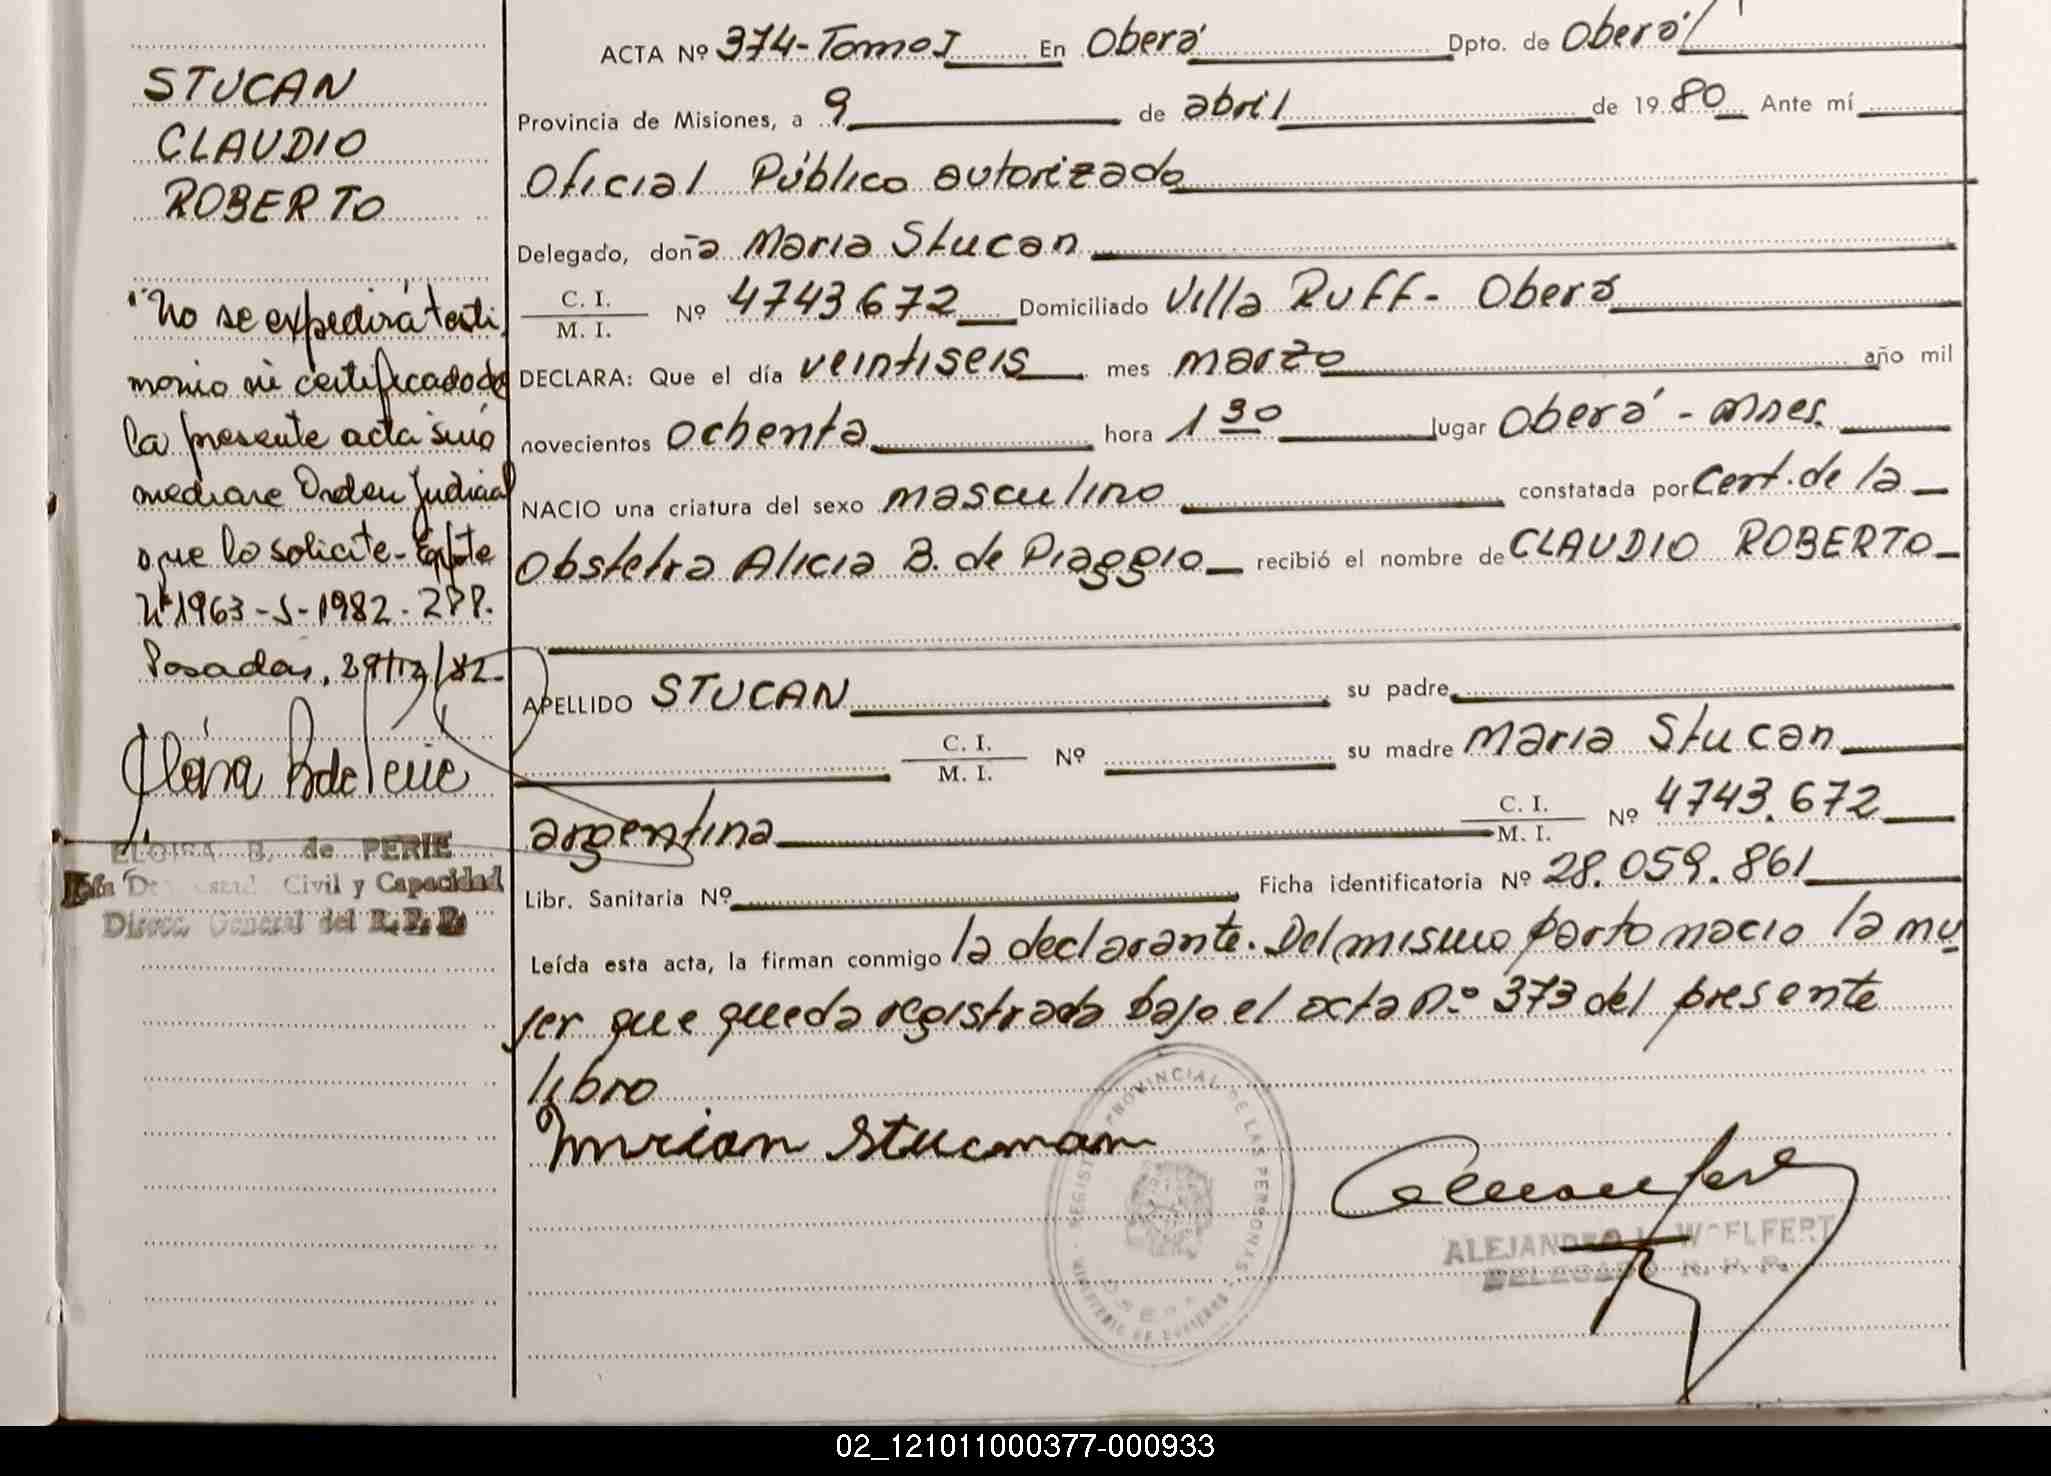 STUCAN
CLAUDIO
ROBERTO
"No se expedirá testi
monio ni certificado de
la presente acta sino
mediare Orden Judicial
que lo solicite - Expte
Nº 1963-S-1982-
Posadas, 29/12/82-
ELOISA B. de PERIE
Civil y Capacidad
General del R. P. P.
ACTA Nº 374-Tomo I En Oberá Dpto. de Oberá
Provincia de Misiones, a 9 de abril de 1980 Ante mí
Oficial Público autorizado
Delegado, doña Maria Stucan
C. I. / M. I. Nº 4743672 Domiciliado Villa Ruff - Oberá
DECLARA: Que el día veintiseis mes marzo año mil
novecientos ochenta hora 1 30 lugar Oberá - Mnes.
NACIO una criatura del sexo masculino constatada por Cert. de la
Obstetra Alicia B. de Piaggio recibió el nombre de CLAUDIO ROBERTO
APELLIDO STUCAN su padre
C. I. / M. I. Nº su madre Maria Stucan
argentina C. I. / M. I. Nº 4743.672
Libr. Sanitaria Nº Ficha identificatoria Nº 28.059.861
Leída esta acta, la firman conmigo la declarante. Del mismo parto nacio la mu
jer que queda registrada bajo el acta n.º 373 del presente
libro
REGISTRO PROVINCIAL DE LAS PERSONAS
MINISTERIO DE GOBIERNO
ALEJANDRO WOELFERT
DELEGADO R. P. P.
02_121011000377-000933